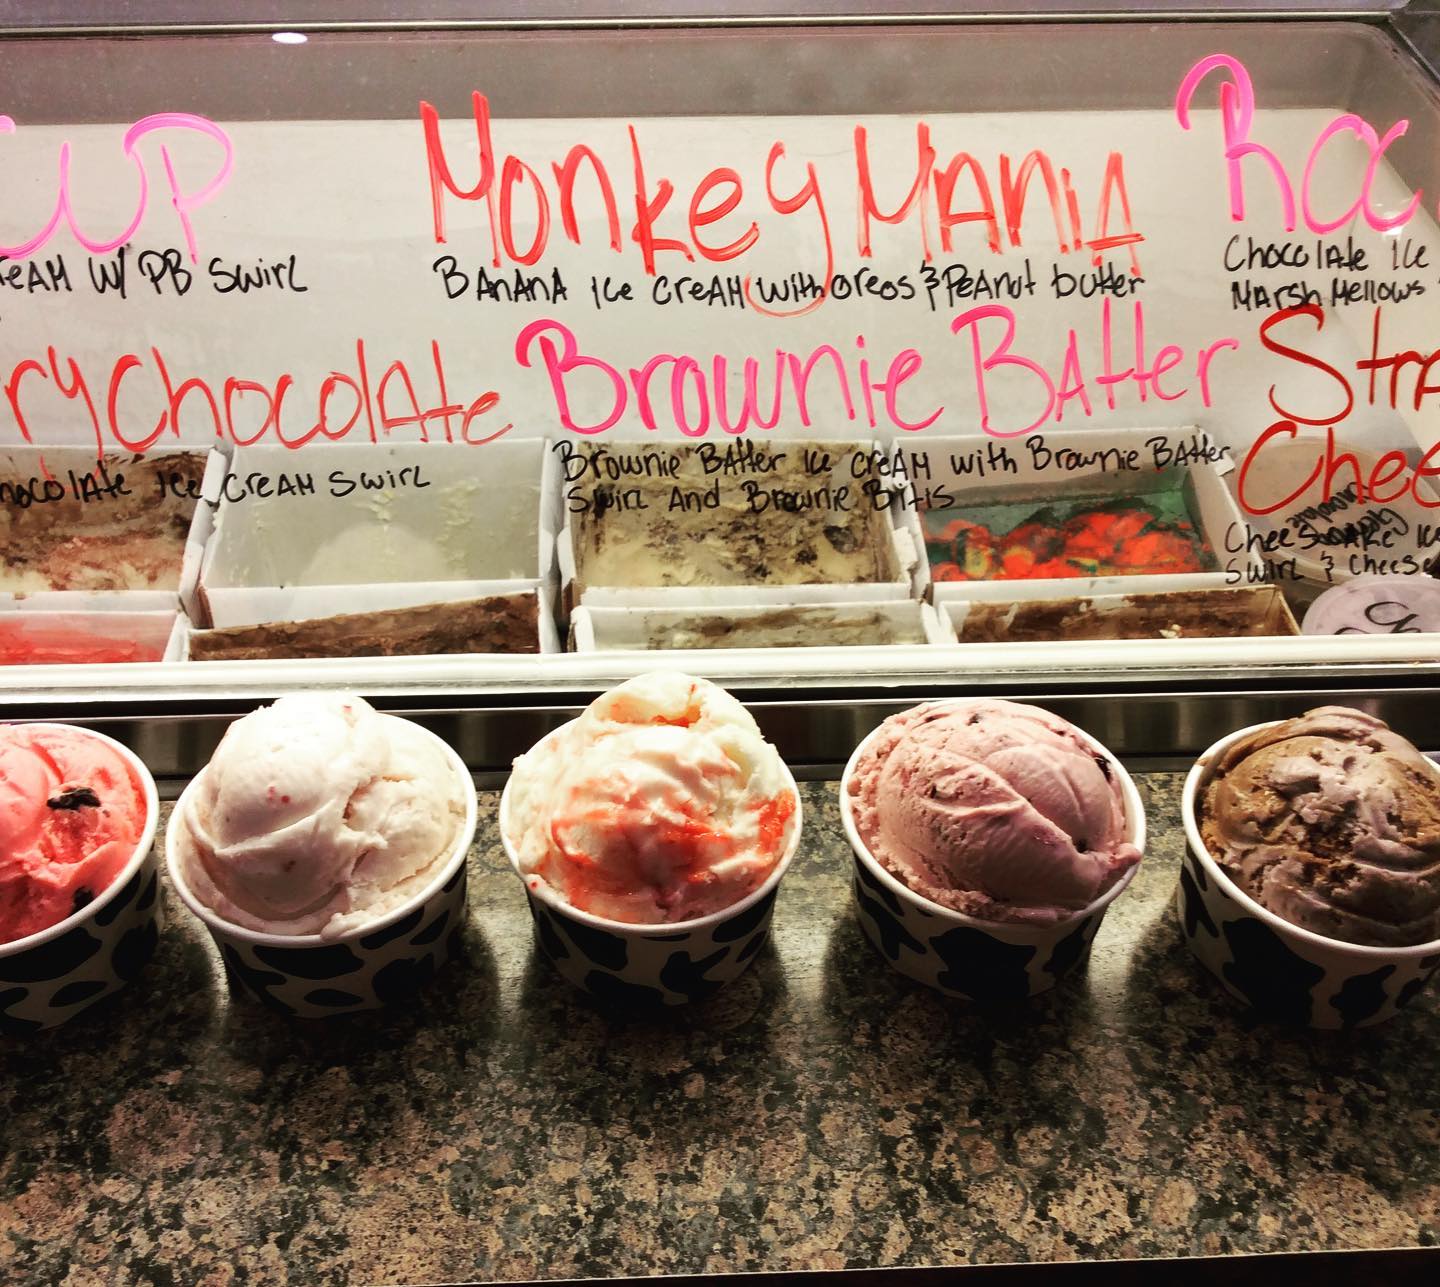 CUP
reAM W/ PB SwirL
Monkey MAniA
BAnAnA Ice CreAM with oreos & PeAnut butter
Roc
ChocolAte Ice
MArsh Mellows
ry ChocolAte
hocolAte Ice CreAM SwirL
Brownie BAtter
Brownie BAtter Ice CreAM with Brownie BAtter
SwirL And Brownie Bitis
StrA
Chee
CheeseCAke Ice
SwirL & Cheese